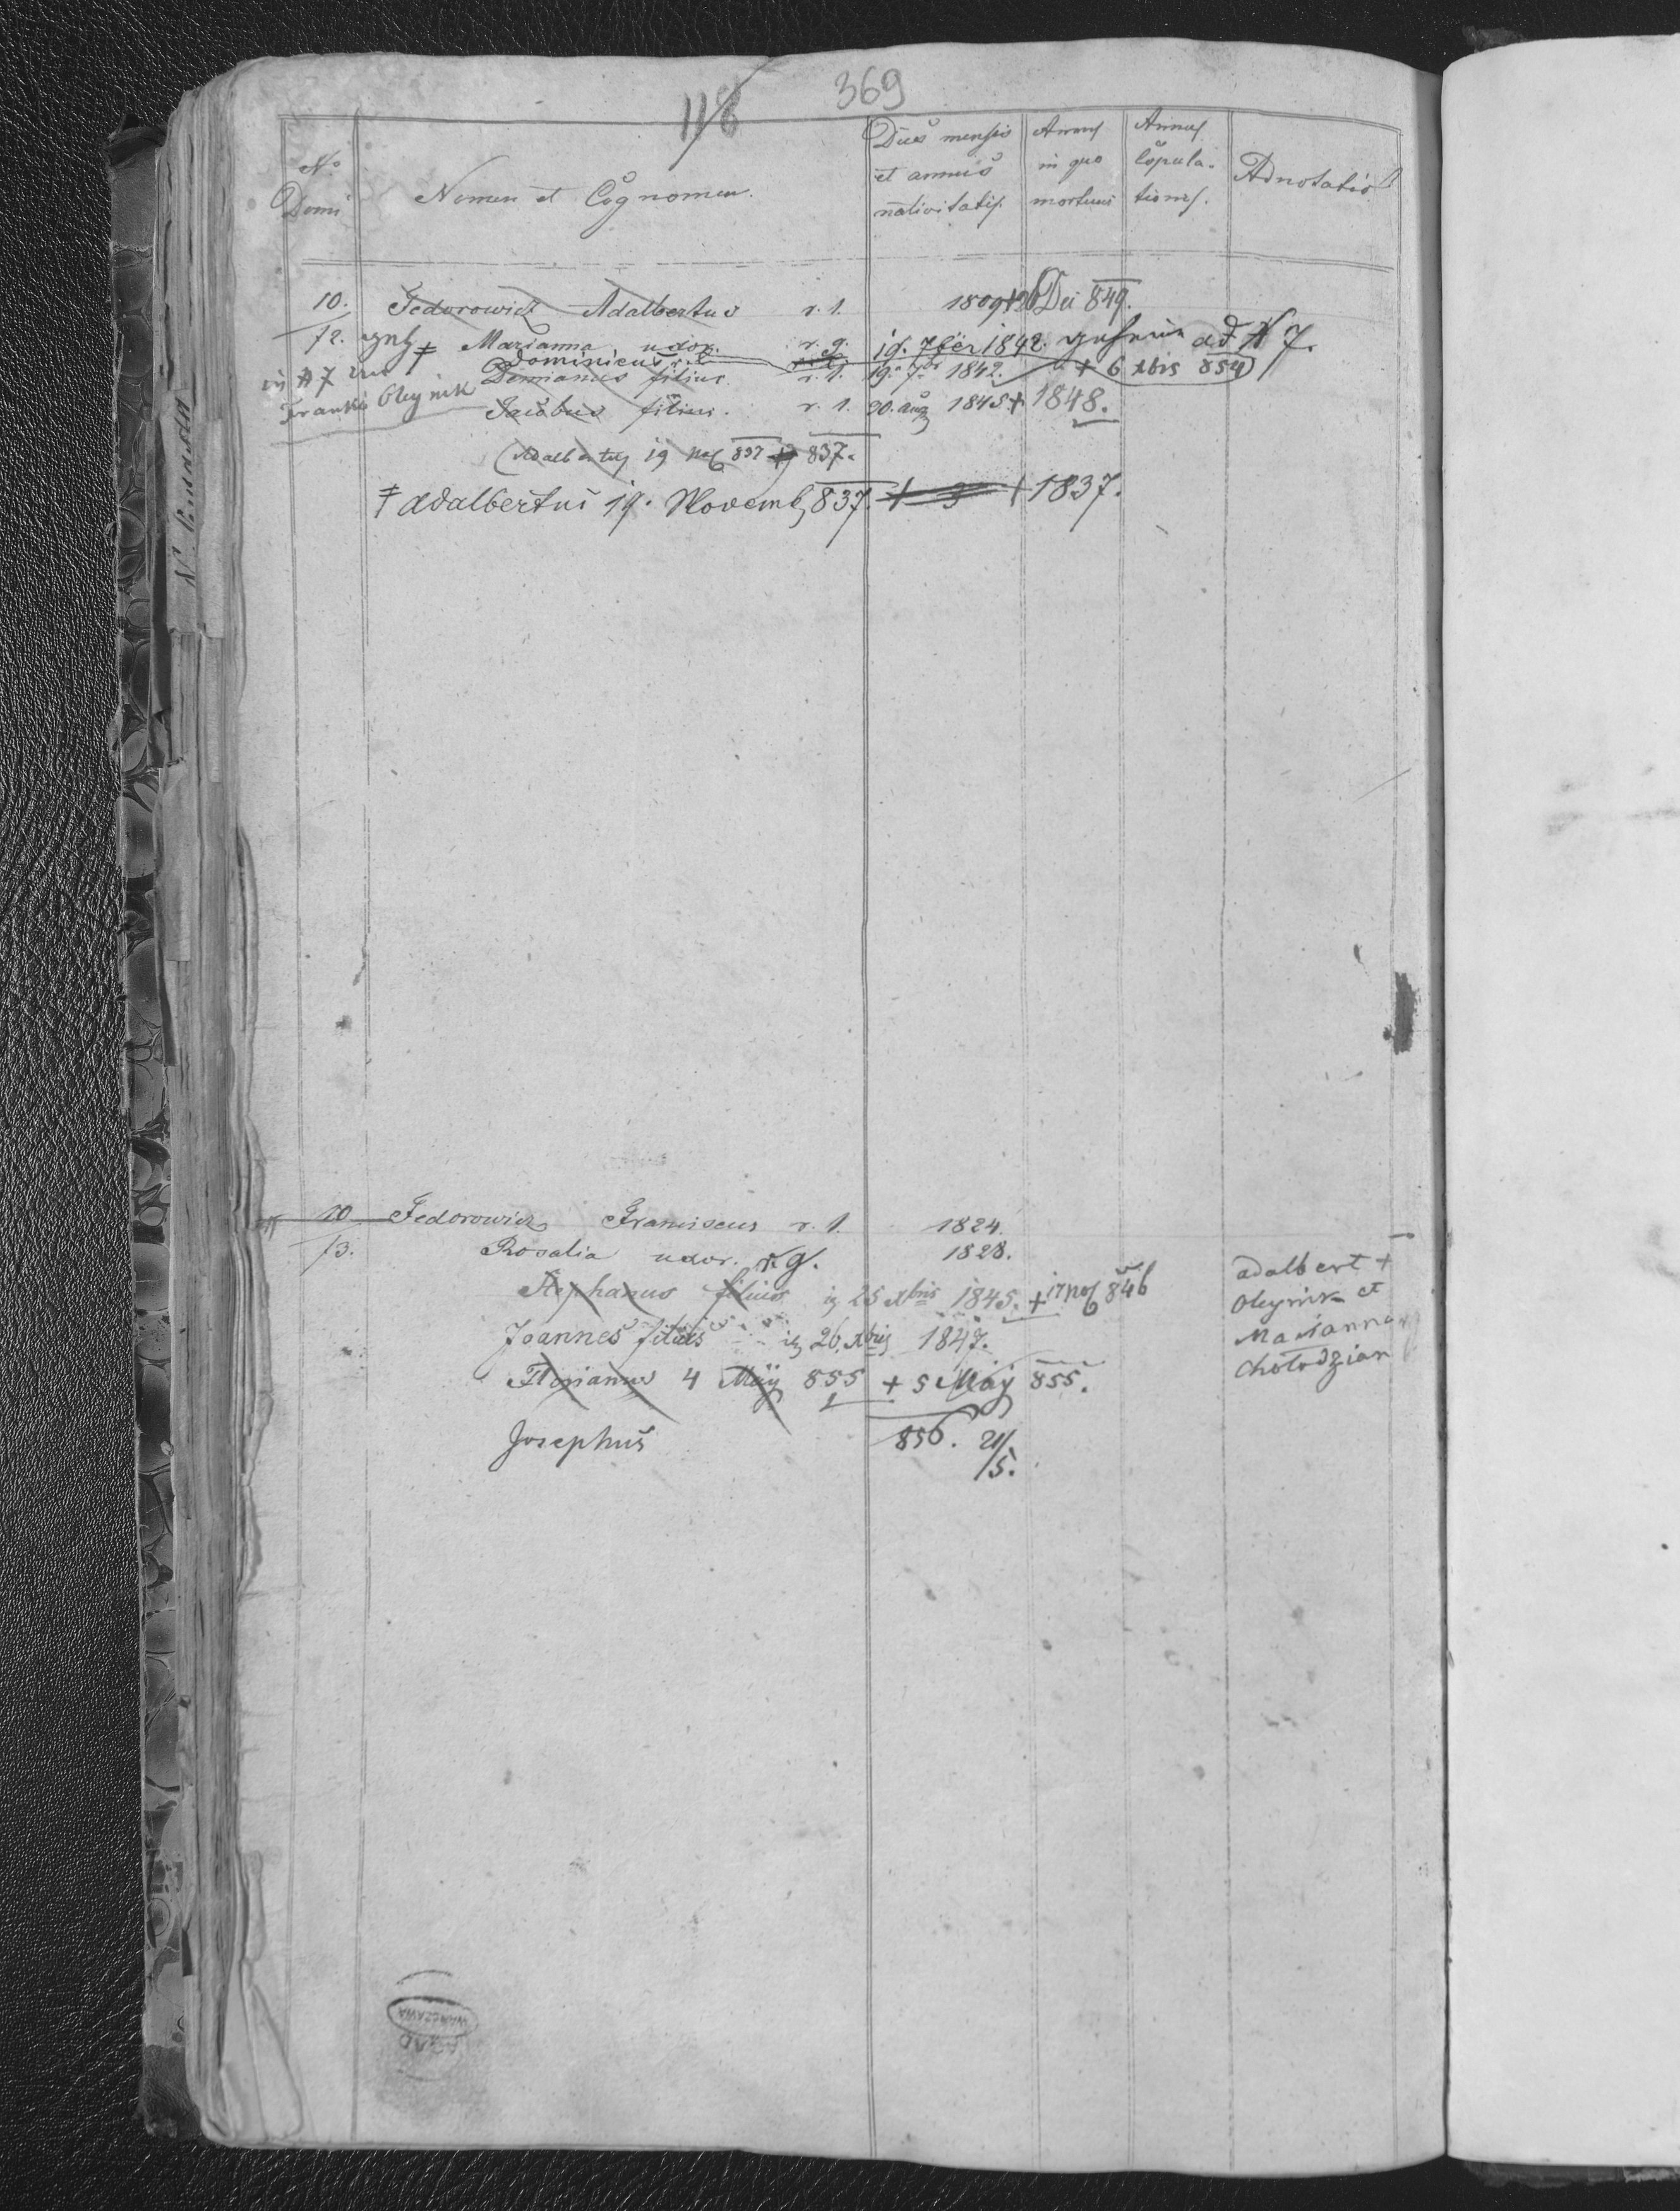 369
118
No Domi
Nomen et Cognomen.
Dies mensis et annus nativitatis
Annus in quo mortuus
Annus Copulationis.
Adnotatio
10. Fedorowicz Adalbertus r. l. 1809 + 26 Dei 849.
12. Marianna uxor. r. g. 19. 7ber 1842. ad N 7.
in N 7
Dominicus
Demianus filius. r. l. 19. 7br 1842. + 6 xbris 854
Franko Oleynik
Jacobus filius. r. l. 20. aug 1845 + 1848.
Adalbertus 19 837 + 837.
‡ Adalbertus 19. Novemb 837. + 3 + 1837.
N. Fedorowicz Franciscus r. l. 1824.
10
13. Rosalia uxor. r. g. 1828.
Stephanus filius 25 Xbris 1845. + 17 846
Joannes filius 26. Xbris 1847.
Florianus 4 Maÿ 855 + 5 Maÿ 855.
Josephus 856. 21/5.
adalbert +
Oleynik et
Marianna
Chołodzian
AGAD
WARSZAWA